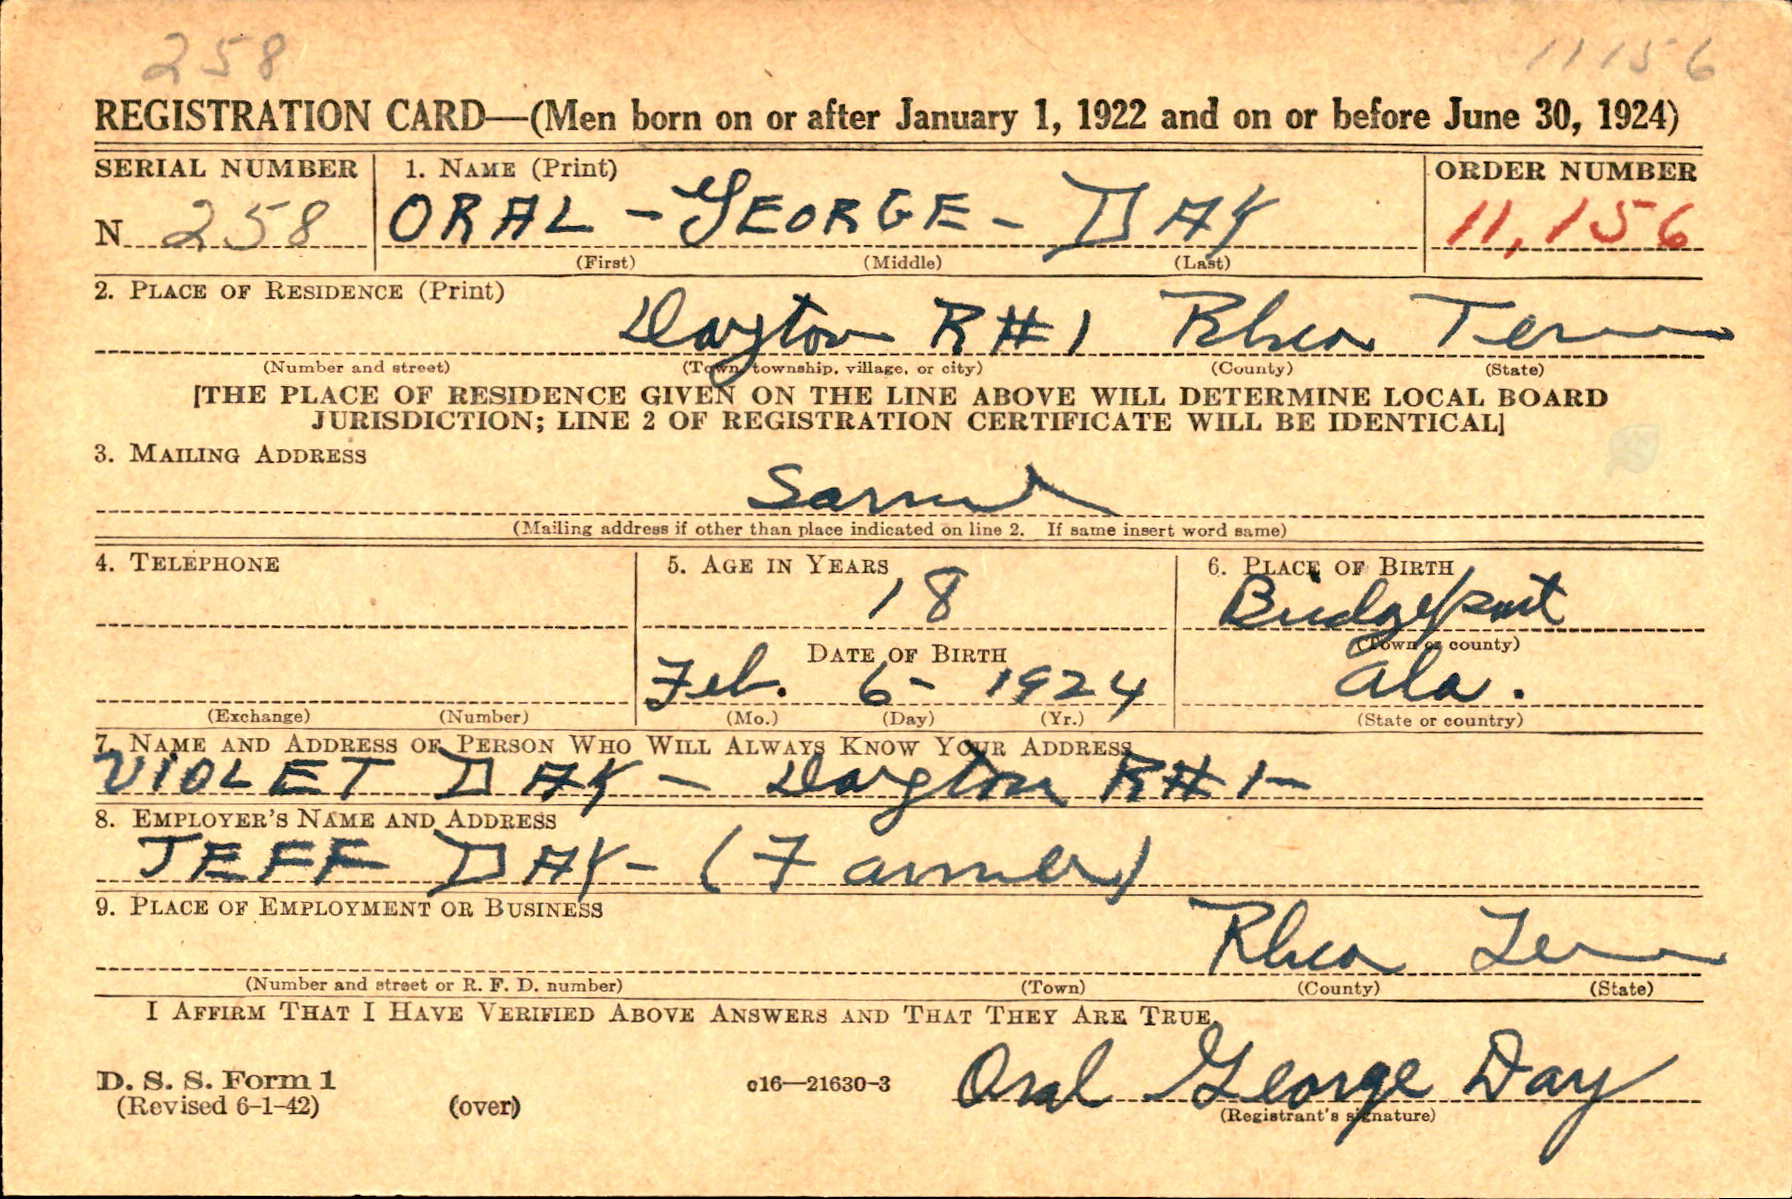 258 11156
REGISTRATION CARD—(Men born on or after January 1, 1922 and on or before June 30, 1924)
SERIAL NUMBER 1. NAME (Print) ORDER NUMBER
N 258 ORAL - GEORGE - DAY 11,156
(First) (Middle) (Last)
2. PLACE OF RESIDENCE (Print)
Dayton R#1 Rhea Tenn
(Number and street) (Town, township, village, or city) (County) (State)
[THE PLACE OF RESIDENCE GIVEN ON THE LINE ABOVE WILL DETERMINE LOCAL BOARD
JURISDICTION; LINE 2 OF REGISTRATION CERTIFICATE WILL BE IDENTICAL]
3. MAILING ADDRESS
Same
(Mailing address if other than place indicated on line 2. If same insert word same)
4. TELEPHONE 5. AGE IN YEARS 6. PLACE OF BIRTH
18 Bridgeport
(Town or county)
DATE OF BIRTH
Feb. 6- 1924 Ala.
(Exchange) (Number) (Mo.) (Day) (Yr.) (State or country)
7. NAME AND ADDRESS OF PERSON WHO WILL ALWAYS KNOW YOUR ADDRESS
VIOLET DAY - Dayton R#1-
8. EMPLOYER'S NAME AND ADDRESS
JEFF DAY- (Farmer)
9. PLACE OF EMPLOYMENT OR BUSINESS
Rhea Tenn
(Number and street or R. F. D. number) (Town) (County) (State)
I AFFIRM THAT I HAVE VERIFIED ABOVE ANSWERS AND THAT THEY ARE TRUE.
D. S. S. Form 1
(Revised 6-1-42) (over) c16—21630-3 Oral George Day
(Registrant's signature)